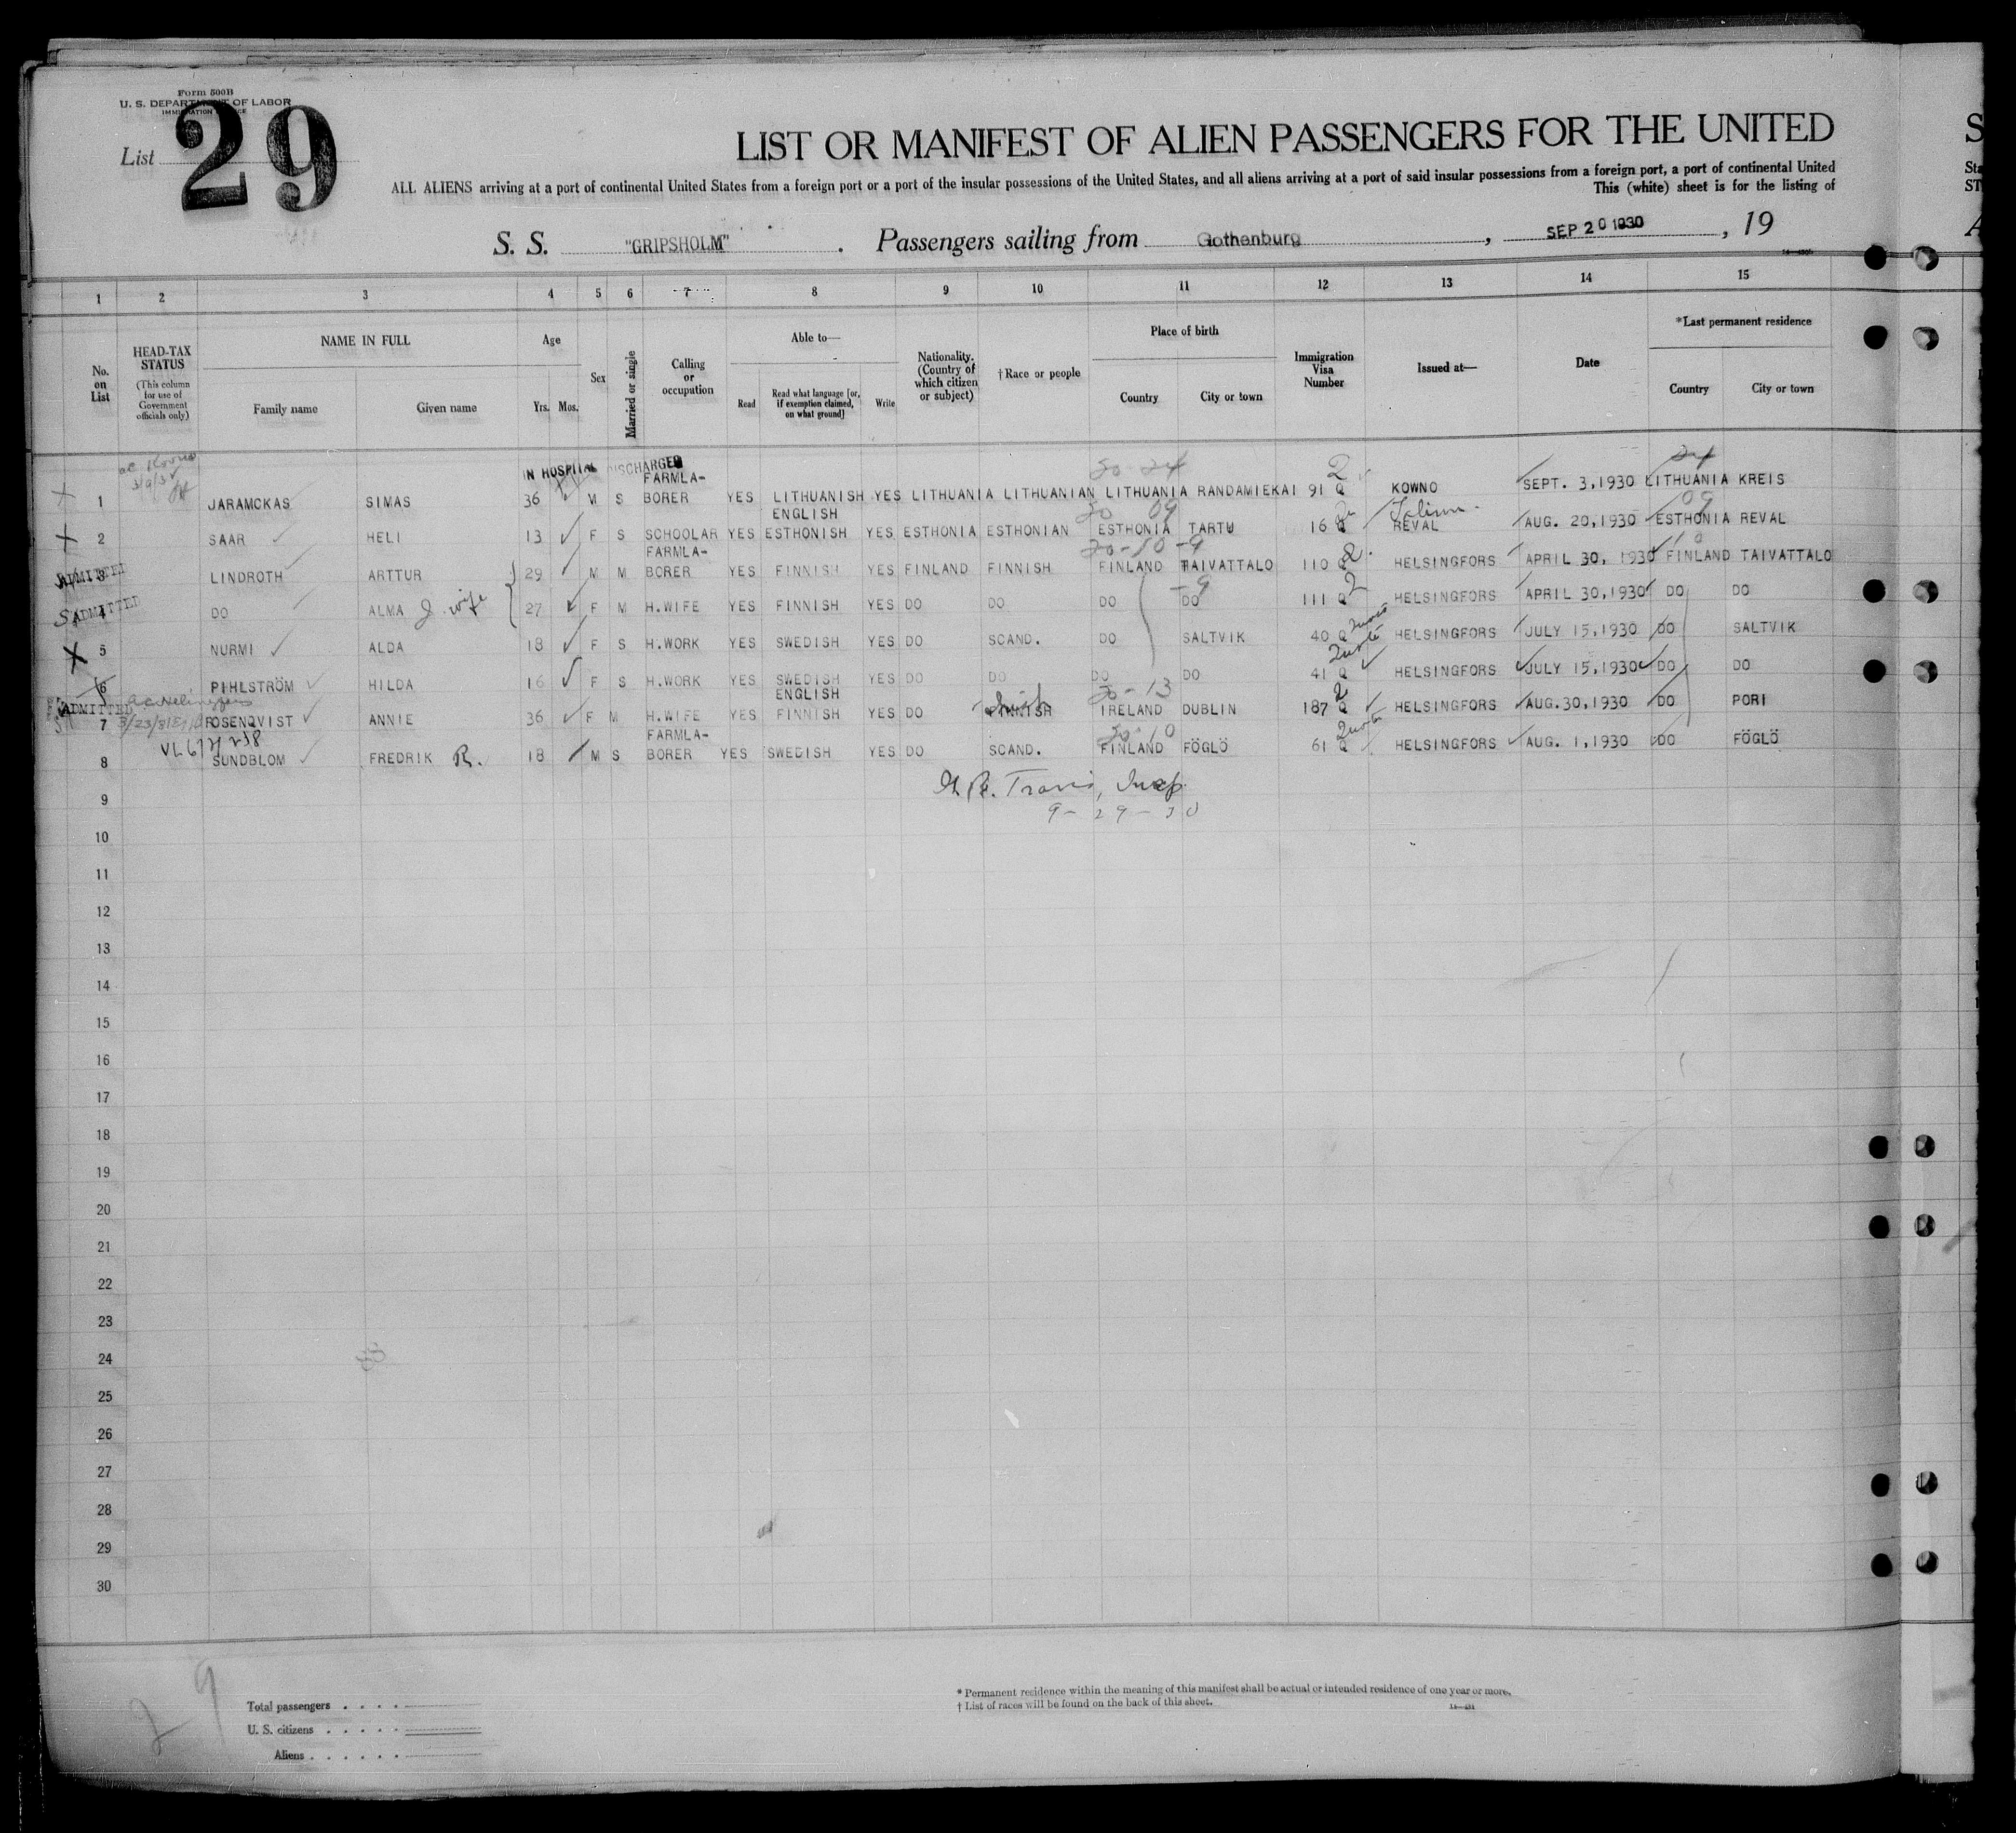 Form 500B
U. S. DEPARTMENT OF LABOR
IMMIGRATION SERVICE
List 29
LIST OR MANIFEST OF ALIEN PASSENGERS FOR THE UNITED
ALL ALIENS arriving at a port of continental United States from a foreign port or a port of the insular possessions of the United States, and all aliens arriving at a port of said insular possessions from a foreign port, a port of continental United
This (white) sheet is for the listing of
S. S. "GRIPSHOLM" . Passengers sailing from Gothenburg , SEP 20 1930 , 19
S
Sta
ST
1 2 3 4 5 6 7 8 9 10 11 12 13 14 15
No. on List
HEAD-TAX STATUS
(This column for use of Government officials only)
NAME IN FULL
Family name Given name
Age
Yrs. Mos.
Sex
Married or single
Calling or occupation
Able to—
Read Read what language [or, if exemption claimed, on what ground] Write
Nationality. (Country of which citizen or subject)
†Race or people
Place of birth
Country City or town
Immigration Visa Number
Issued at—
Date
*Last permanent residence
Country City or town
3/9/38
IN HOSPITAL DISCHARGED
20-24 24
FARMLA-
1 JARAMCKAS SIMAS 36 M S BORER YES LITHUANISH YES LITHUANIA LITHUANIAN LITHUANIA RANDAMIEKAI 91 Q KOWNO SEPT. 3,1930 LITHUANIA KREIS
ENGLISH 20 09 09
2 SAAR HELI 13 F S SCHOOLAR YES ESTHONISH YES ESTHONIA ESTHONIAN ESTHONIA TARTU 16 Q REVAL AUG. 20,1930 ESTHONIA REVAL
FARMLA- 20-10-9 10
ADMITTED 3 LINDROTH ARTTUR 29 M M BORER YES FINNISH YES FINLAND FINNISH FINLAND TAIVATTALO 110 Q HELSINGFORS APRIL 30, 1930 FINLAND TAIVATTALO
ADMITTED 4 DO ALMA J. wife 27 F M H.WIFE YES FINNISH YES DO DO DO DO 111 Q HELSINGFORS APRIL 30,1930 DO DO
5 NURMI ALDA 18 F S H.WORK YES SWEDISH YES DO SCAND. DO SALTVIK 40 Q HELSINGFORS JULY 15,1930 DO SALTVIK
6 PIHLSTRÖM HILDA 16 F S H.WORK YES SWEDISH YES DO DO DO DO 41 Q HELSINGFORS JULY 15,1930 DO DO
ENGLISH Irish 20-13
ADMITTED 7 ROSENQVIST ANNIE 36 F M H.WIFE YES FINNISH YES DO FINNISH IRELAND DUBLIN 187 Q HELSINGFORS AUG.30,1930 DO PORI
FARMLA- 20-10
8 SUNDBLOM FREDRIK R. 18 M S BORER YES SWEDISH YES DO SCAND. FINLAND FÖGLÖ 61 Q HELSINGFORS AUG. 1,1930 DO FÖGLÖ
Travis, Insp.
9-29-30
9
10
11
12
13
14
15
16
17
18
19
20
21
22
23
24
25
26
27
28
29
30
29
Total passengers . . . .
U. S. citizens . . . . .
Aliens . . . . . .
* Permanent residence within the meaning of this manifest shall be actual or intended residence of one year or more.
† List of races will be found on the back of this sheet.